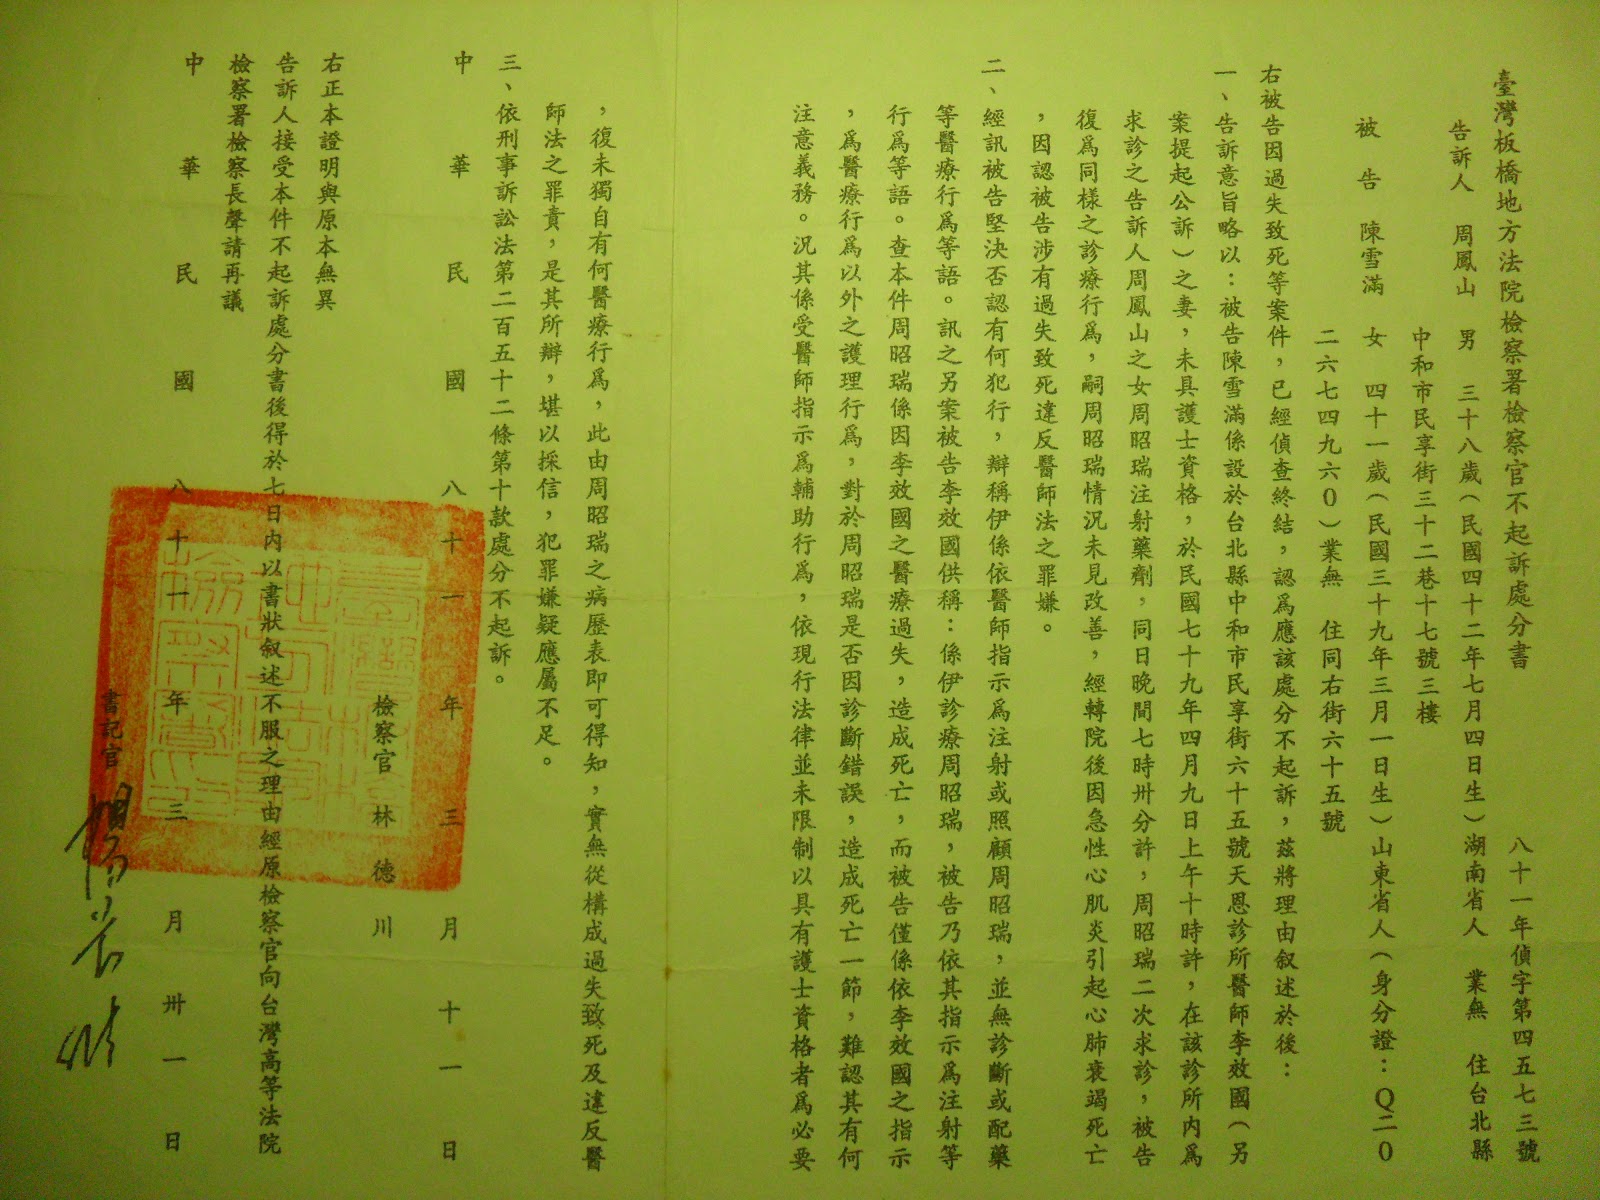 臺灣板橋地方法院檢察署檢察官不起訴處分書
八十一年偵字第四五七三號
告訴人　周鳳山　男　三十八歲（民國四十二年七月四日生）湖南省人　業無　住台北縣
中和市民享街三十二巷十七號三樓
被　告　陳雪滿　女　四十一歲（民國三十九年三月一日生）山東省人（身分證：Ｑ二０
二六七四九六０）業無　住同右街六十五號
右被告因過失致死等案件，已經偵查終結，認為應該處分不起訴，茲將理由叙述於後：
一、告訴意旨略以：被告陳雪滿係設於台北縣中和市民享街六十五號天恩診所醫師李效國（另
案提起公訴）之妻，未具護士資格，於民國七十九年四月九日上午十時許，在該診所內為
求診之告訴人周鳳山之女周昭瑞注射藥劑，同日晚間七時卅分許，周昭瑞二次求診，被告
復為同樣之診療行為，嗣周昭瑞情況未見改善，經轉院後因急性心肌炎引起心肺衰竭死亡
，因認被告涉有過失致死違反醫師法之罪嫌。
二、經訊被告堅決否認有何犯行，辯稱伊係依醫師指示為注射或照顧周昭瑞，並無診斷或配藥
等醫療行為等語。訊之另案被告李效國供稱：係伊診療周昭瑞，被告乃依其指示為注射等
行為等語。查本件周昭瑞係因李效國之醫療過失，造成死亡，而被告僅係依李效國之指示
，為醫療行為以外之護理行為，對於周昭瑞是否因診斷錯誤，造成死亡一節，難認其有何
注意義務。況其係受醫師指示為輔助行為，依現行法律並未限制以具有護士資格者為必要
，復未獨自有何醫療行為，此由周昭瑞之病歷表即可得知，實無從構成過失致死及違反醫
師法之罪責，是其所辯，堪以採信，犯罪嫌疑應屬不足。
三、依刑事訴訟法第二百五十二條第十款處分不起訴。
中　華　民　國　八　十　一　年　三　月　十　一　日
檢察官　林　德　川
右正本證明與原本無異
告訴人接受本件不起訴處分書後得於七日內以書狀叙述不服之理由經原檢察官向台灣高等法院
檢察署檢察長聲請再議
中　華　民　國　八　十　一　年　三　月　卅　一　日
書記官